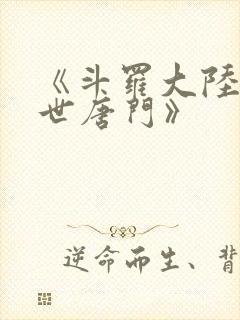 《斗羅大陸
世唐門》
逆命而生、背